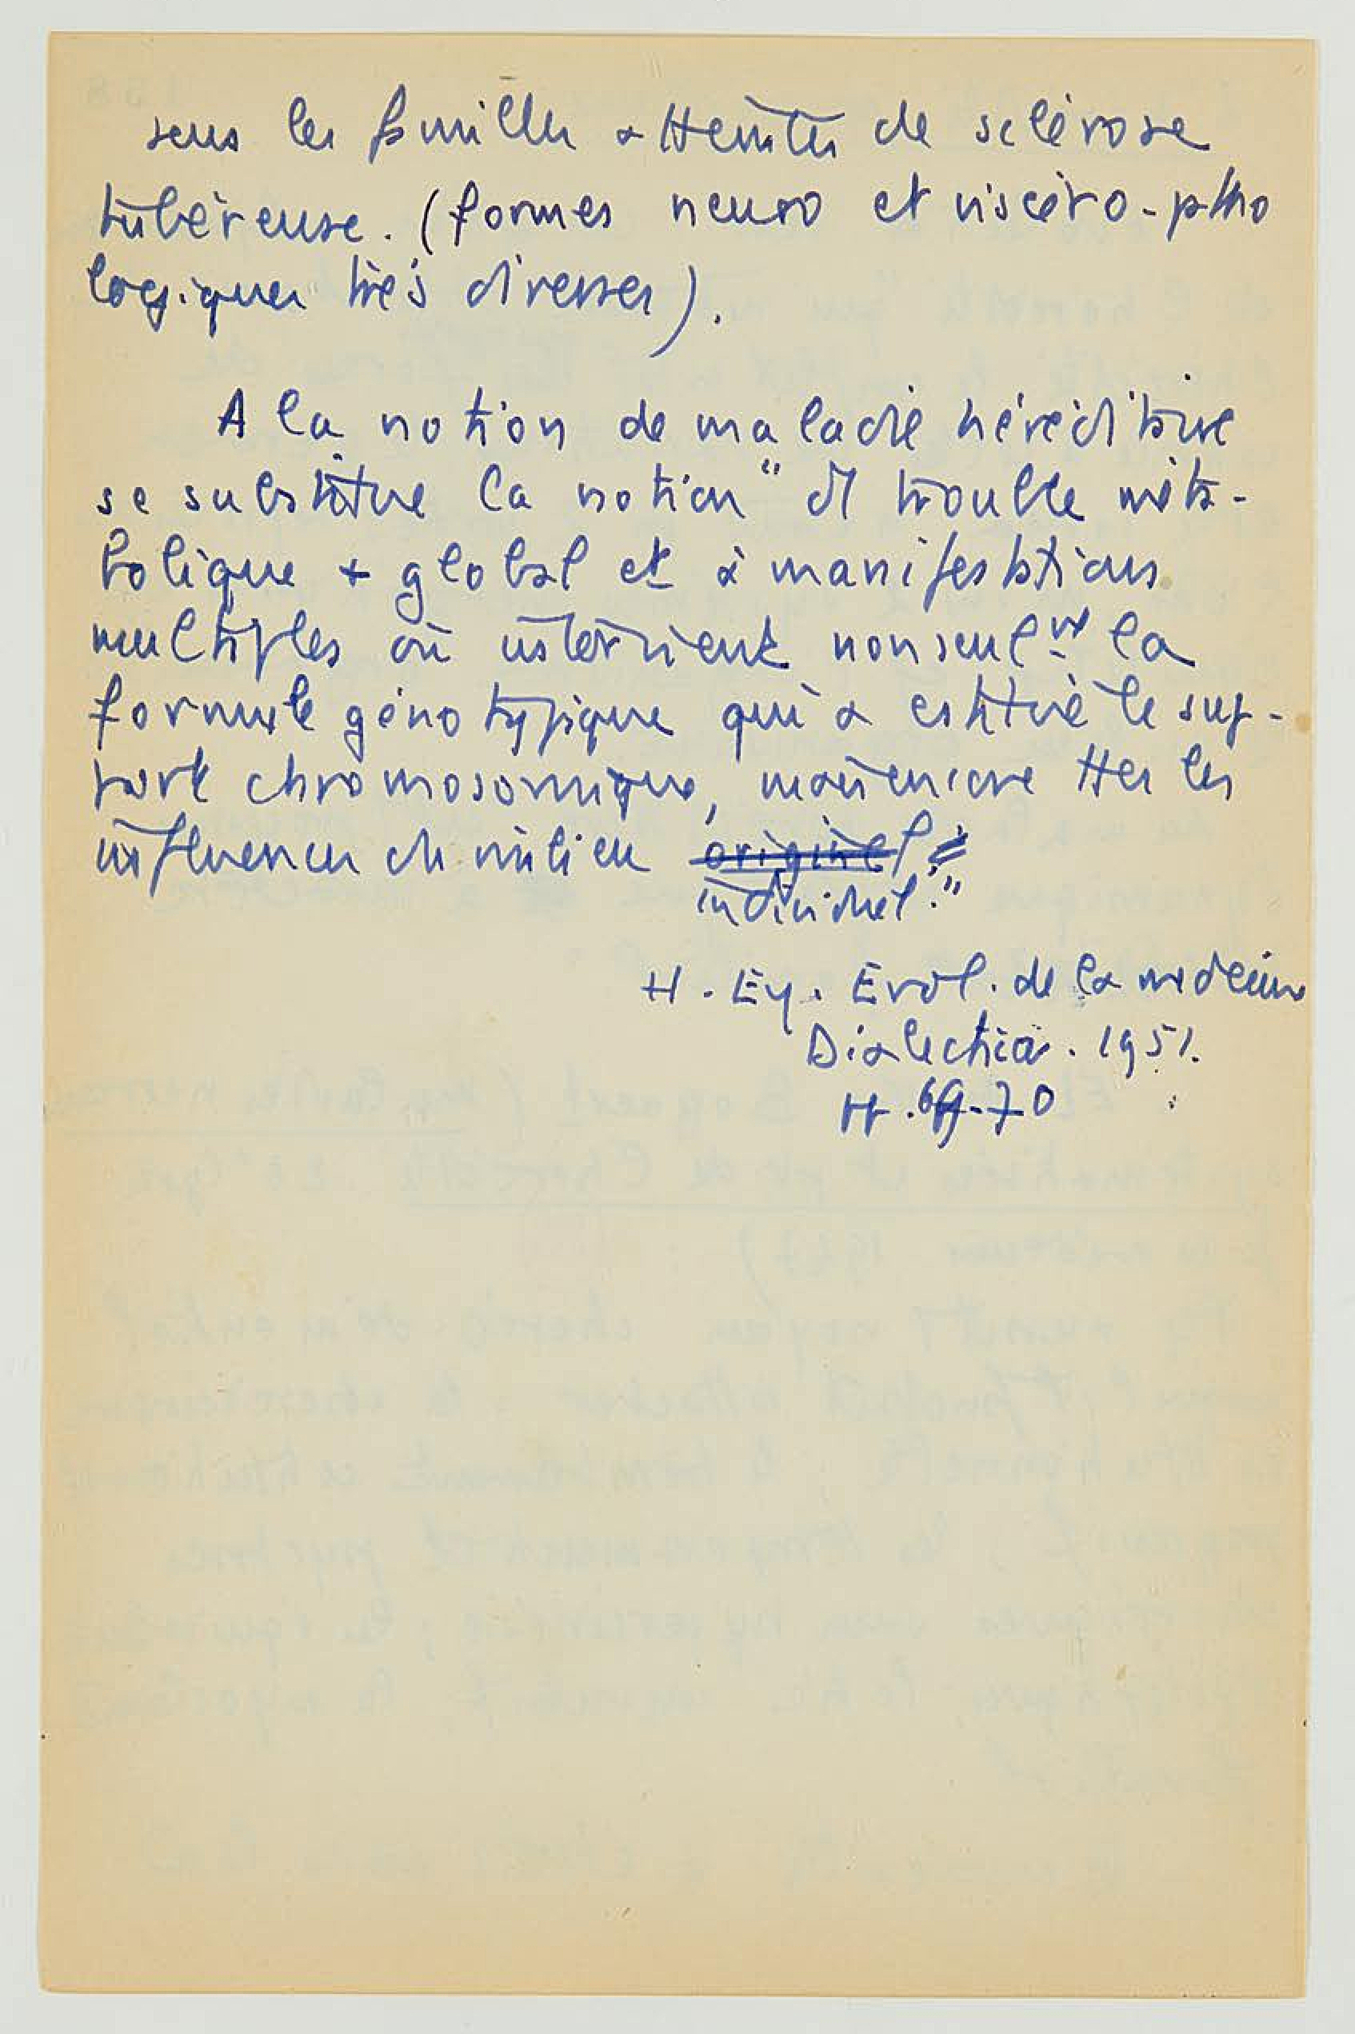 sens les familles atteintes de sclérose
tubéreuse. (formes neuro et viscéro-patho
logiques très diverses).
A la notion de maladie héréditaire
se substitue la notion "d'1 trouble méta-
bolique + global et à manifestations
multiples où intervient non seulnt la
formule génotypique qui a constitué le sup-
port chromosomique, mais encore ttes les
influences du milieu originel."
individuel."
H. Ey. Evol. de la médecine
Dialectica. 1951.
pp. 69-70